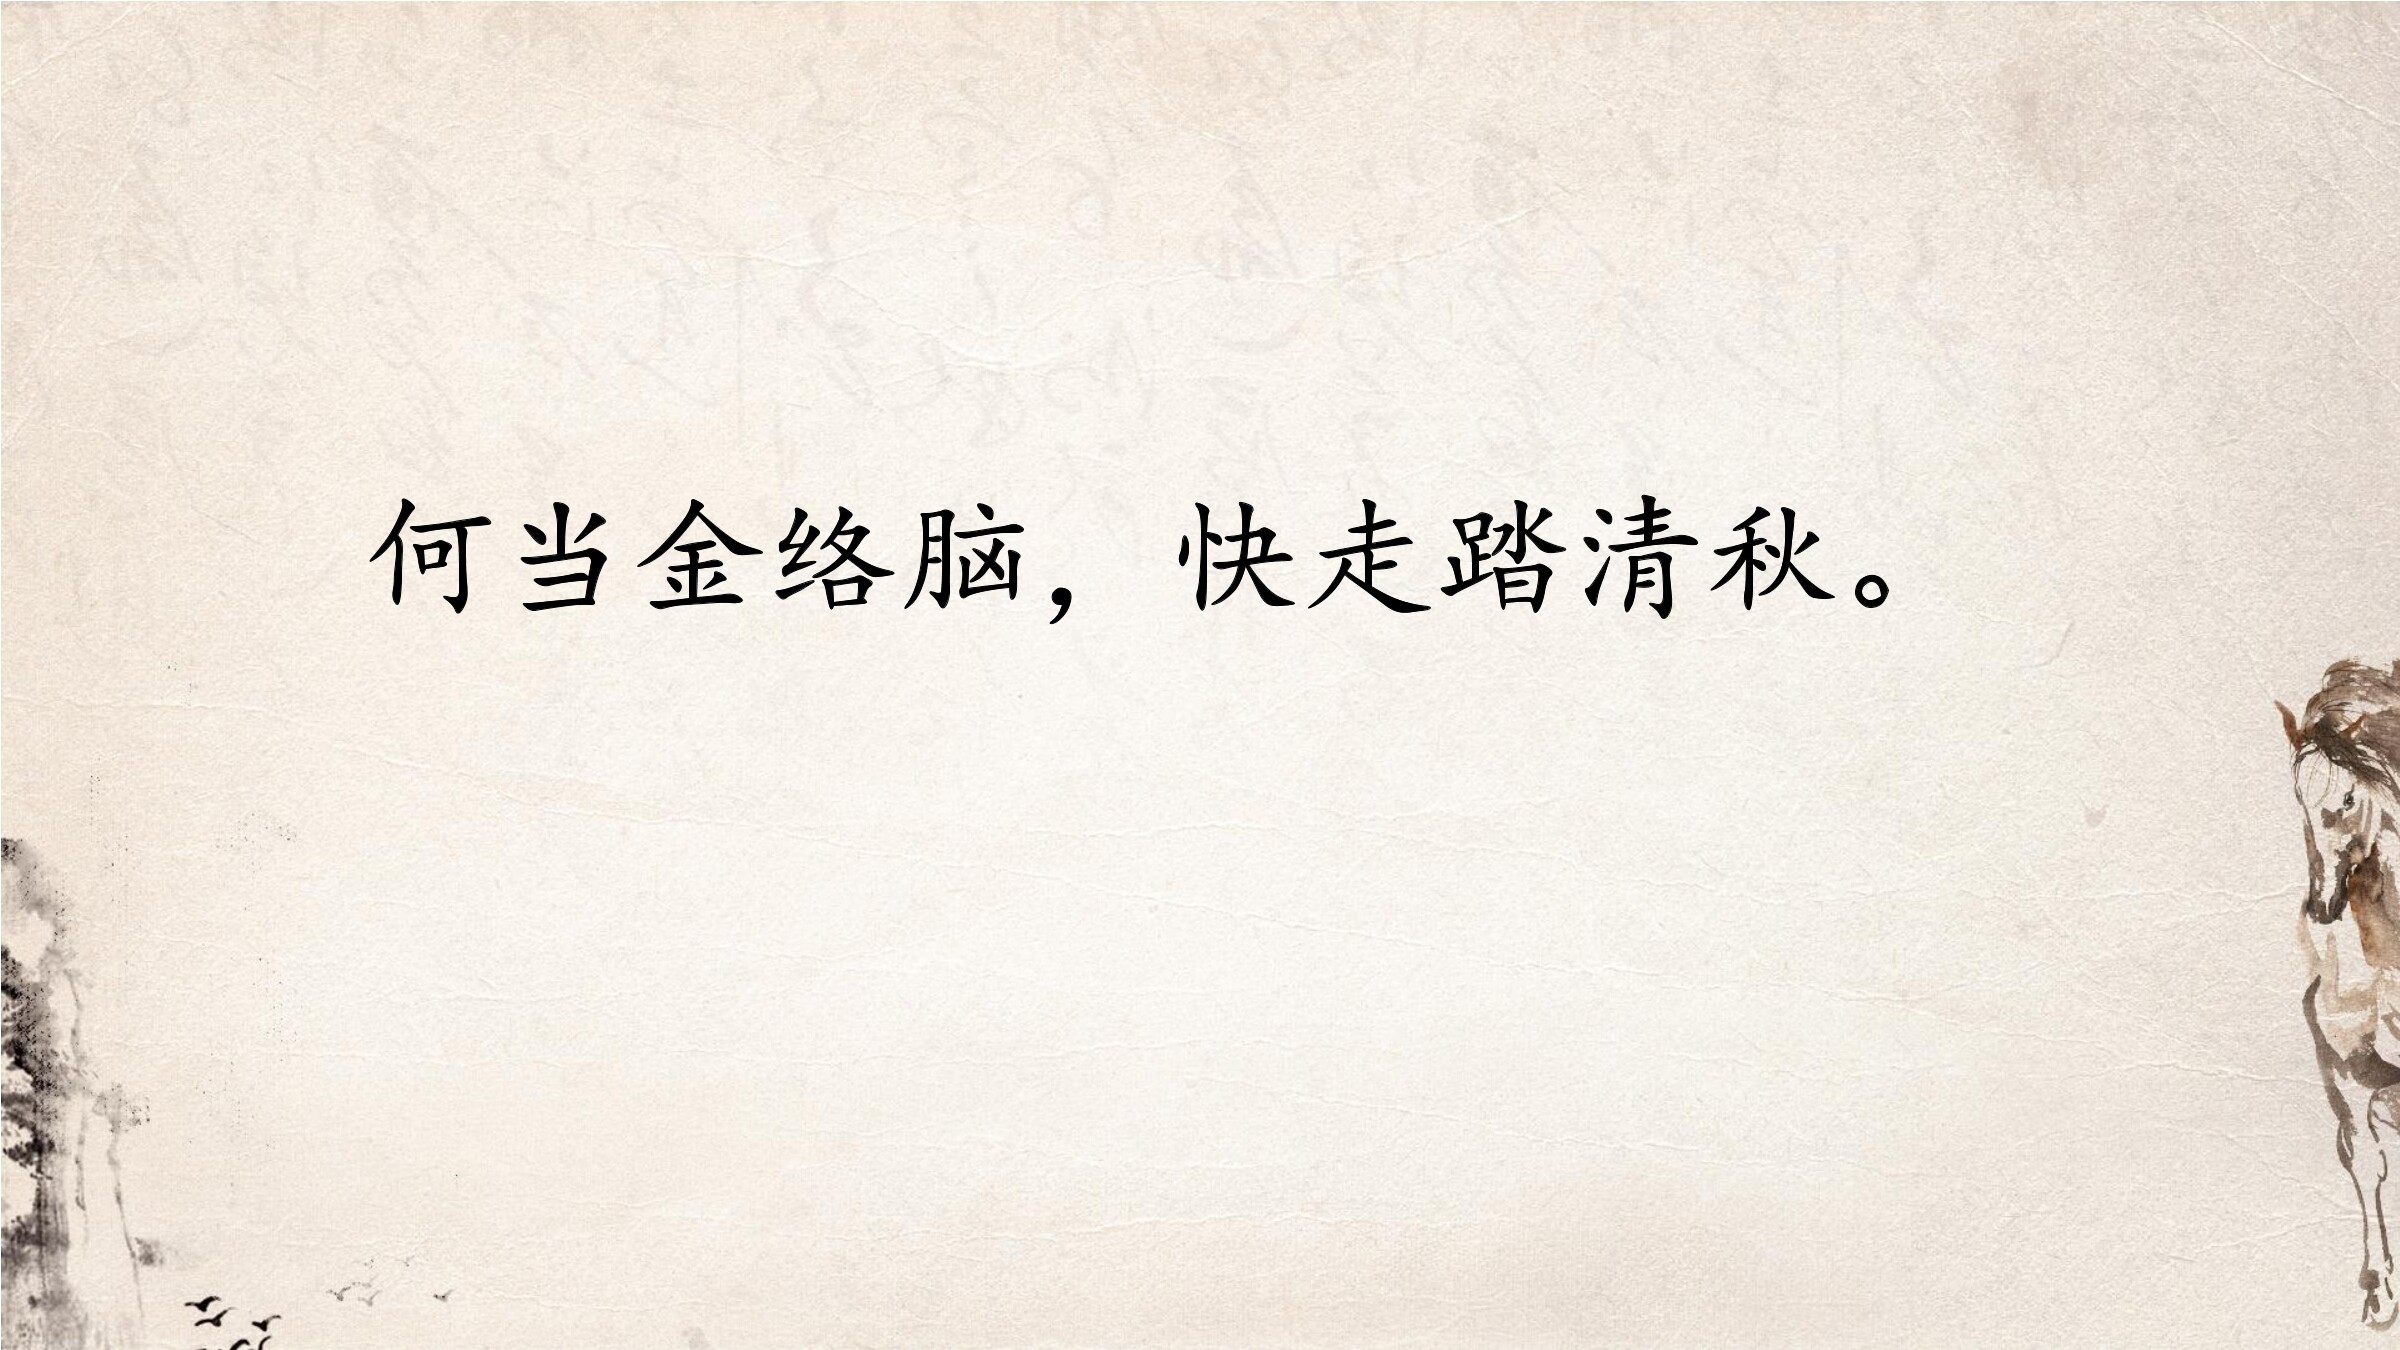 何当金络脑，快走踏清秋。